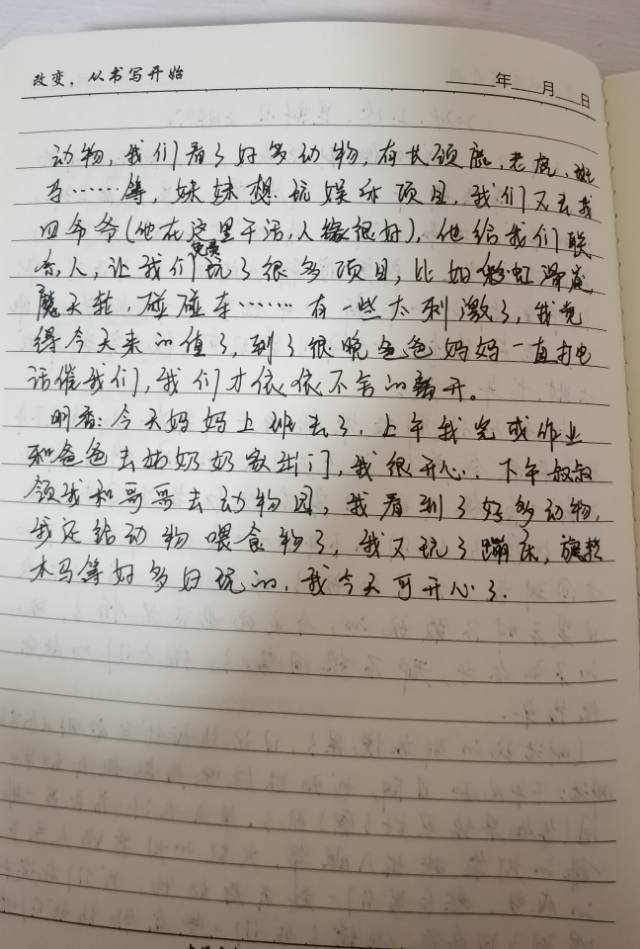 改变，从书写开始
年 月 日
动物，我们看了好多动物，有长颈鹿，老虎、斑
马……等，妹妹想玩娱乐项目，我们又去我
四爷爷(他在这里干活，人缘很好)，他给我们联
系人，让我们免费玩了很多项目，比如彩虹滑道
魔天轮，碰碰车…… 有一些太刺激了，我觉
得今天来的值了，到了很晚爸爸妈妈一直打电
话催我们，我们才依依不舍的离开。
明杳：今天妈妈上班去了，上午我完成作业
和爸爸去姑奶奶家出门，我很开心、下午叔叔
领我和哥哥去动物园，我看到了好多动物，
我还给动物喂食物了，我又玩了蹦床，旋转
木马等好多好玩的，我今天可开心了．